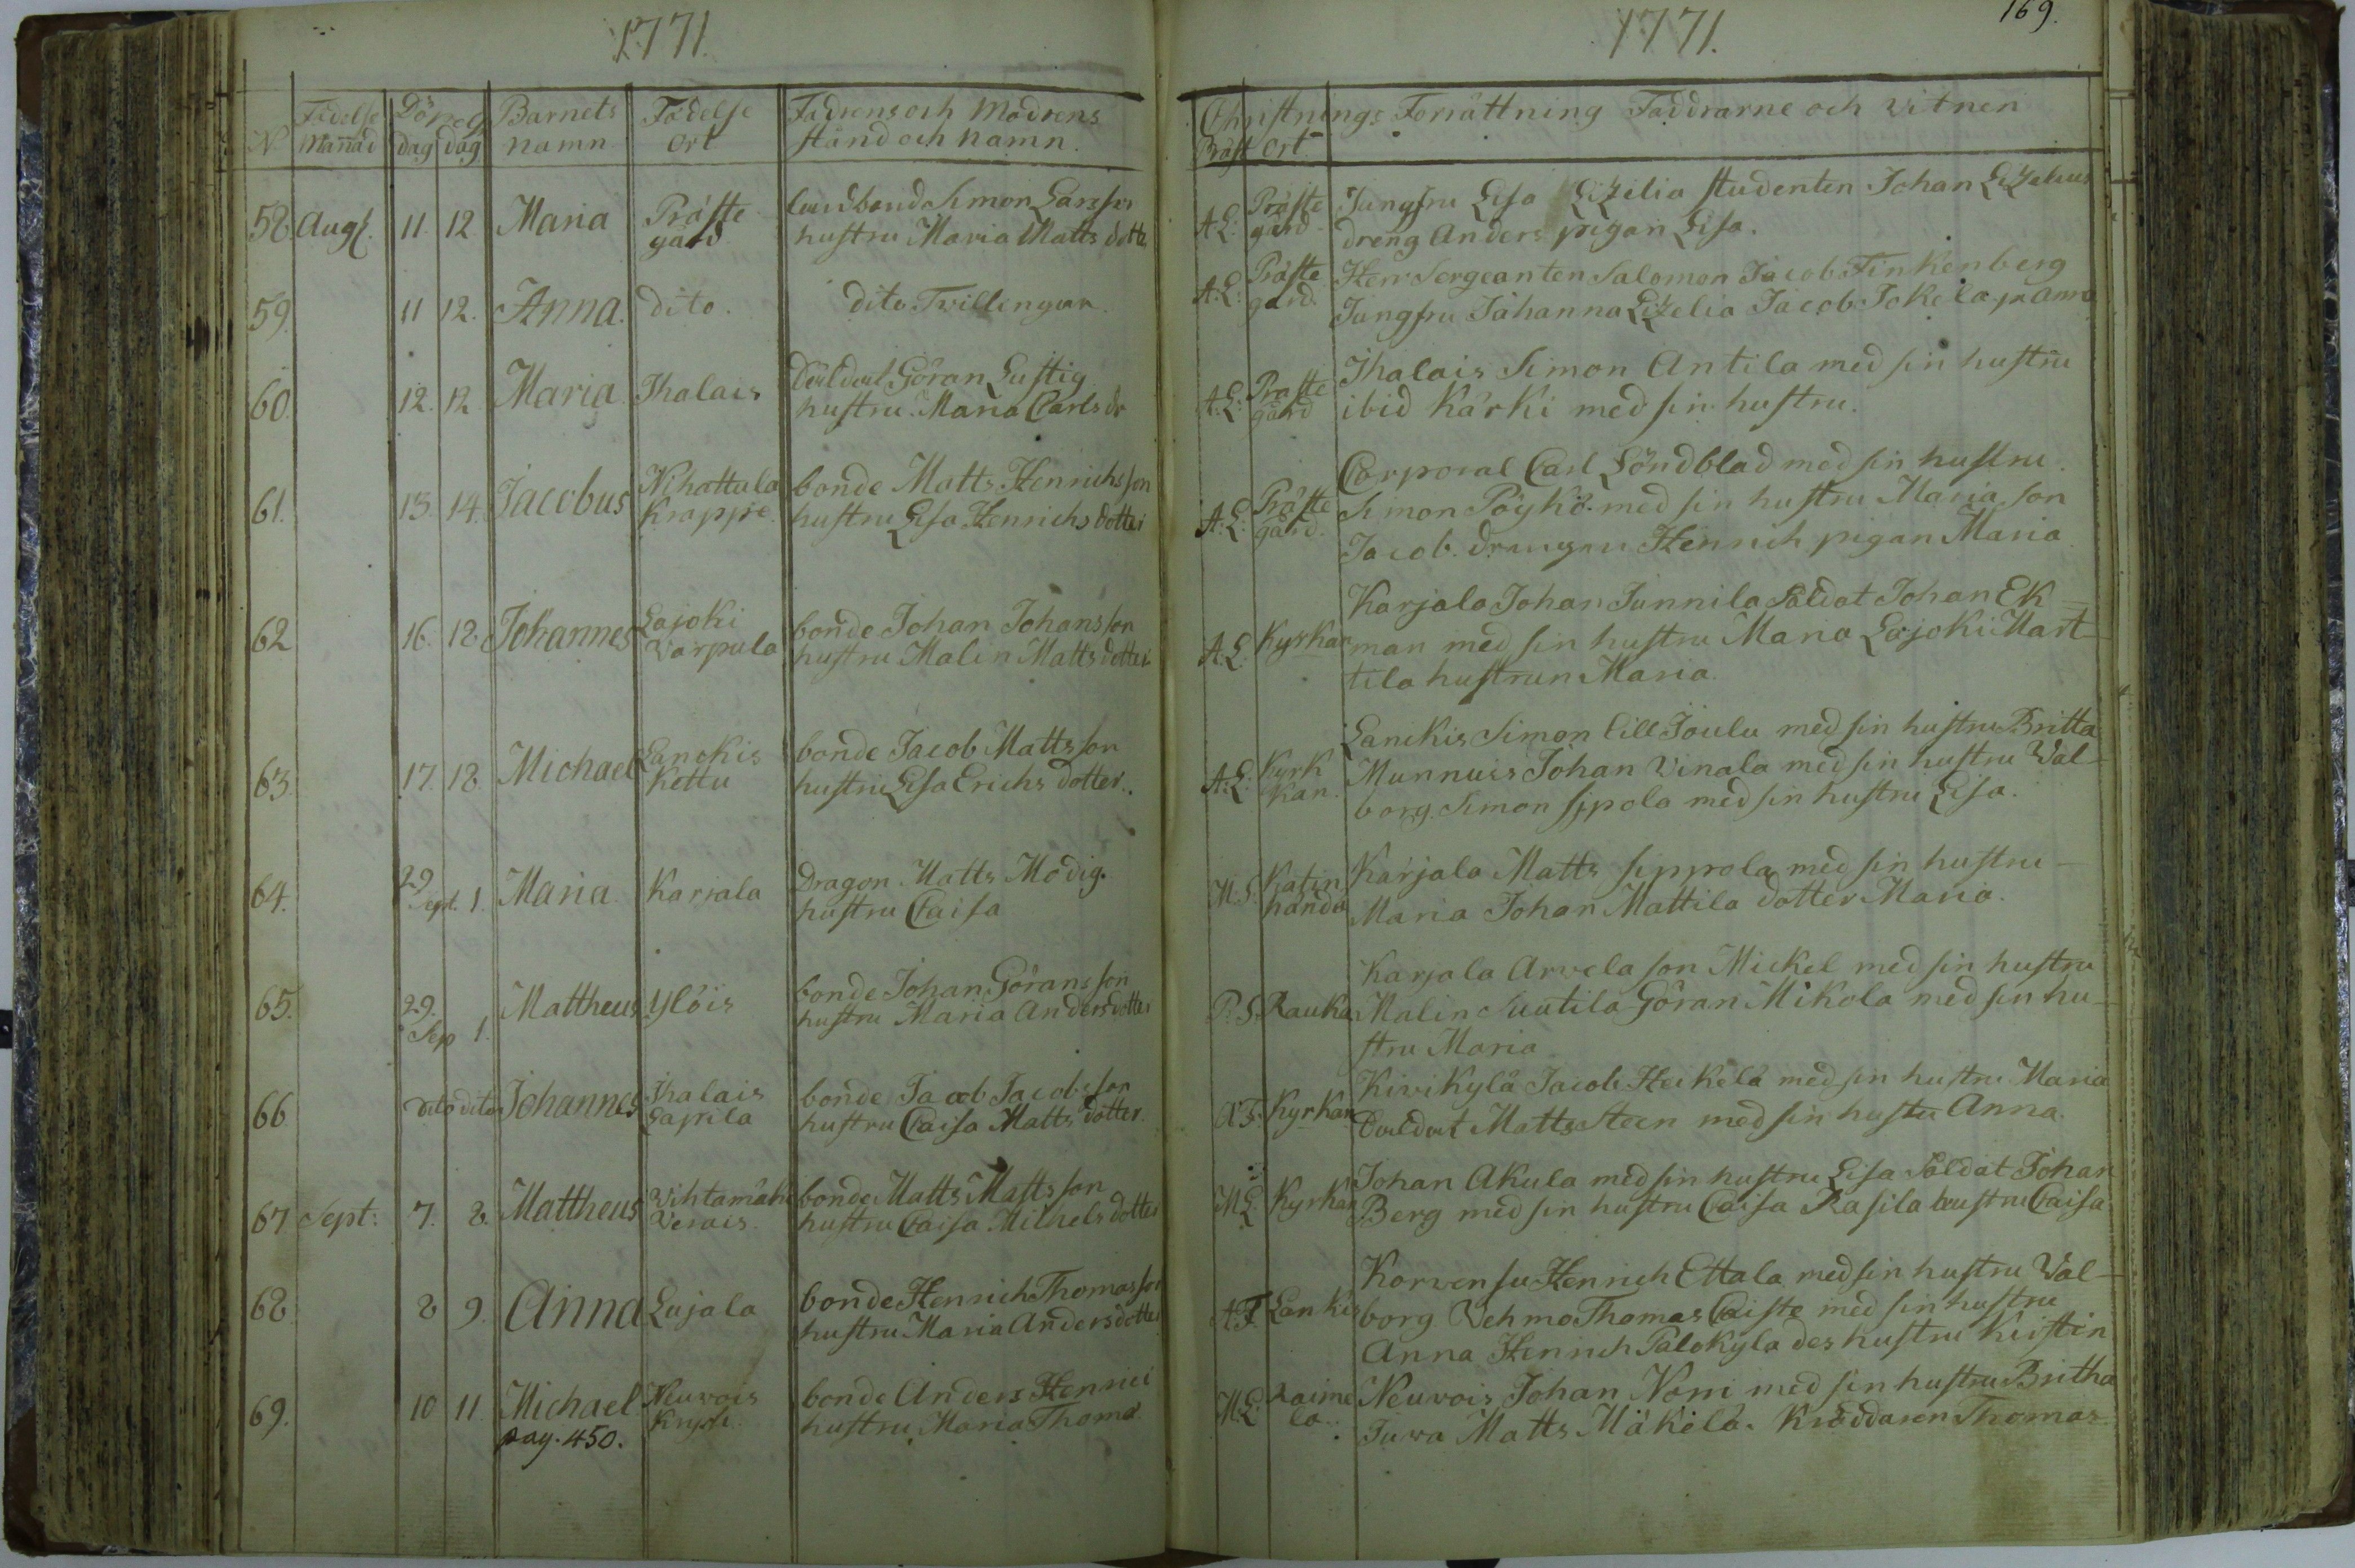 1771.
N Födelse Månad Dag Döpelse dag Barnets namn Födelse Ort Fadrens och Modrens stånd och namn.
58. Augl. 11. 12 Maria Präste gård landbond Simon Larsson
hustru Maria Matts dotte
59. 11 12. Anna. dito. dito Tvillingar
60. 12. 12 Maria. Ihalais Soldat Göran Lustig
hustru Maria Carls dr
61. 13. 14. Jacobus Nihattula Krappe bonde Matts Henrichs son
hustru Lisa Henrichs dotter
62 16. 18 Johannes Lajoki Varpula bonde Johan Johans son
hustru Malin Matts dotter
63. 17. 18. Michael Lanckis Kettu bonde Jacob Matts son
hustru Lisa Erichs dotter.
64. 29 Sept. 1. Maria Karjala Dragon Matts Modig.
hustru Caisa
65. 29. Sep 1. Mattheus Ylöis bonde Johan Görans son
hustru Maria Anders dotter
66 dito dito Johannes Ihalais Laprila bonde Jacob Jacobs son
hustru Caisa Matts dotter.
67 Sept: 7. 8. Mattheus Wihtamäki Verais bonde Matts Matts son
hustru Caisa Mihels dotter
68 8 9. Anna Lajala bonde Henrich Thomas son
hustru Maria Anders dotter
69. 10 11. Michael Neuvois bonde Anders Henrici
hustru Maria Thoma
pag. 450.
1771.
169.
Christnings Förrättning Faddrarne och Vitnen
Präst Ort.
A.L: Präste gård Jungfru Lisa Lizelia studenten Johan Lizelius
dreng Anders pigan Lisa.
A.L: Präste gård Herr Sergeanten Salomon Jacob Finkenberg
Jungfru Johanna Lizelia Jacob Jokela p. Anna
A.L: Präste gård Ihalais Simon Antila med sin hustru
ibid Kärki med sin hustru.
Corporal Carl Söndblad med sin hustru
A.L: Präste gård. Simon Pöykö med sin hustru Maria, son
Jacob. drängen Henrich pigan Maria
Karjala Johan Junnila Soldat Johan Ek
A.L. Kyrkan man med sin hustru Maria Lajoki Mart-
tila hustrun Maria.
Lanckis Simon Lill Joulu med sin hustru Britta
A.L: Kyrk kan. Munnuis Johan Vinala med sin hustru Wal-
borg. Simon Sipola med sin hustru Lisa.
M.S. Katin hända Karjala Matts Sipprola med sin hustru
Maria Johan Mattila dotter Maria.
Karjala Arvela son Mickel med sin hustru
P.S. Rauka Malin Suutila Göran Mikola med sin hu-
stru Maria
Kivikylä Jacob Heikelä med sin hustru Maria
A.F. Kyrkan Soldat Matts Steen med sin hustru Anna.
Johan Akula med sin hustru Lisa Soldat Johan
M.L Kyrkan Berg med sin hustru Caisa Rasila hustru Caisa
Korvensu Henrich Ettala med sin hustru Wal-
A.F. Lankis borg Vehmo Thomas Caiste med sin hustru
Anna Henrich Palokyla des hustru Kirstin
M.L. Raime la. Neuvois Johan Norri med sin hustru Britha
Juva Matts Mäkelä. Kräddaren Thomas